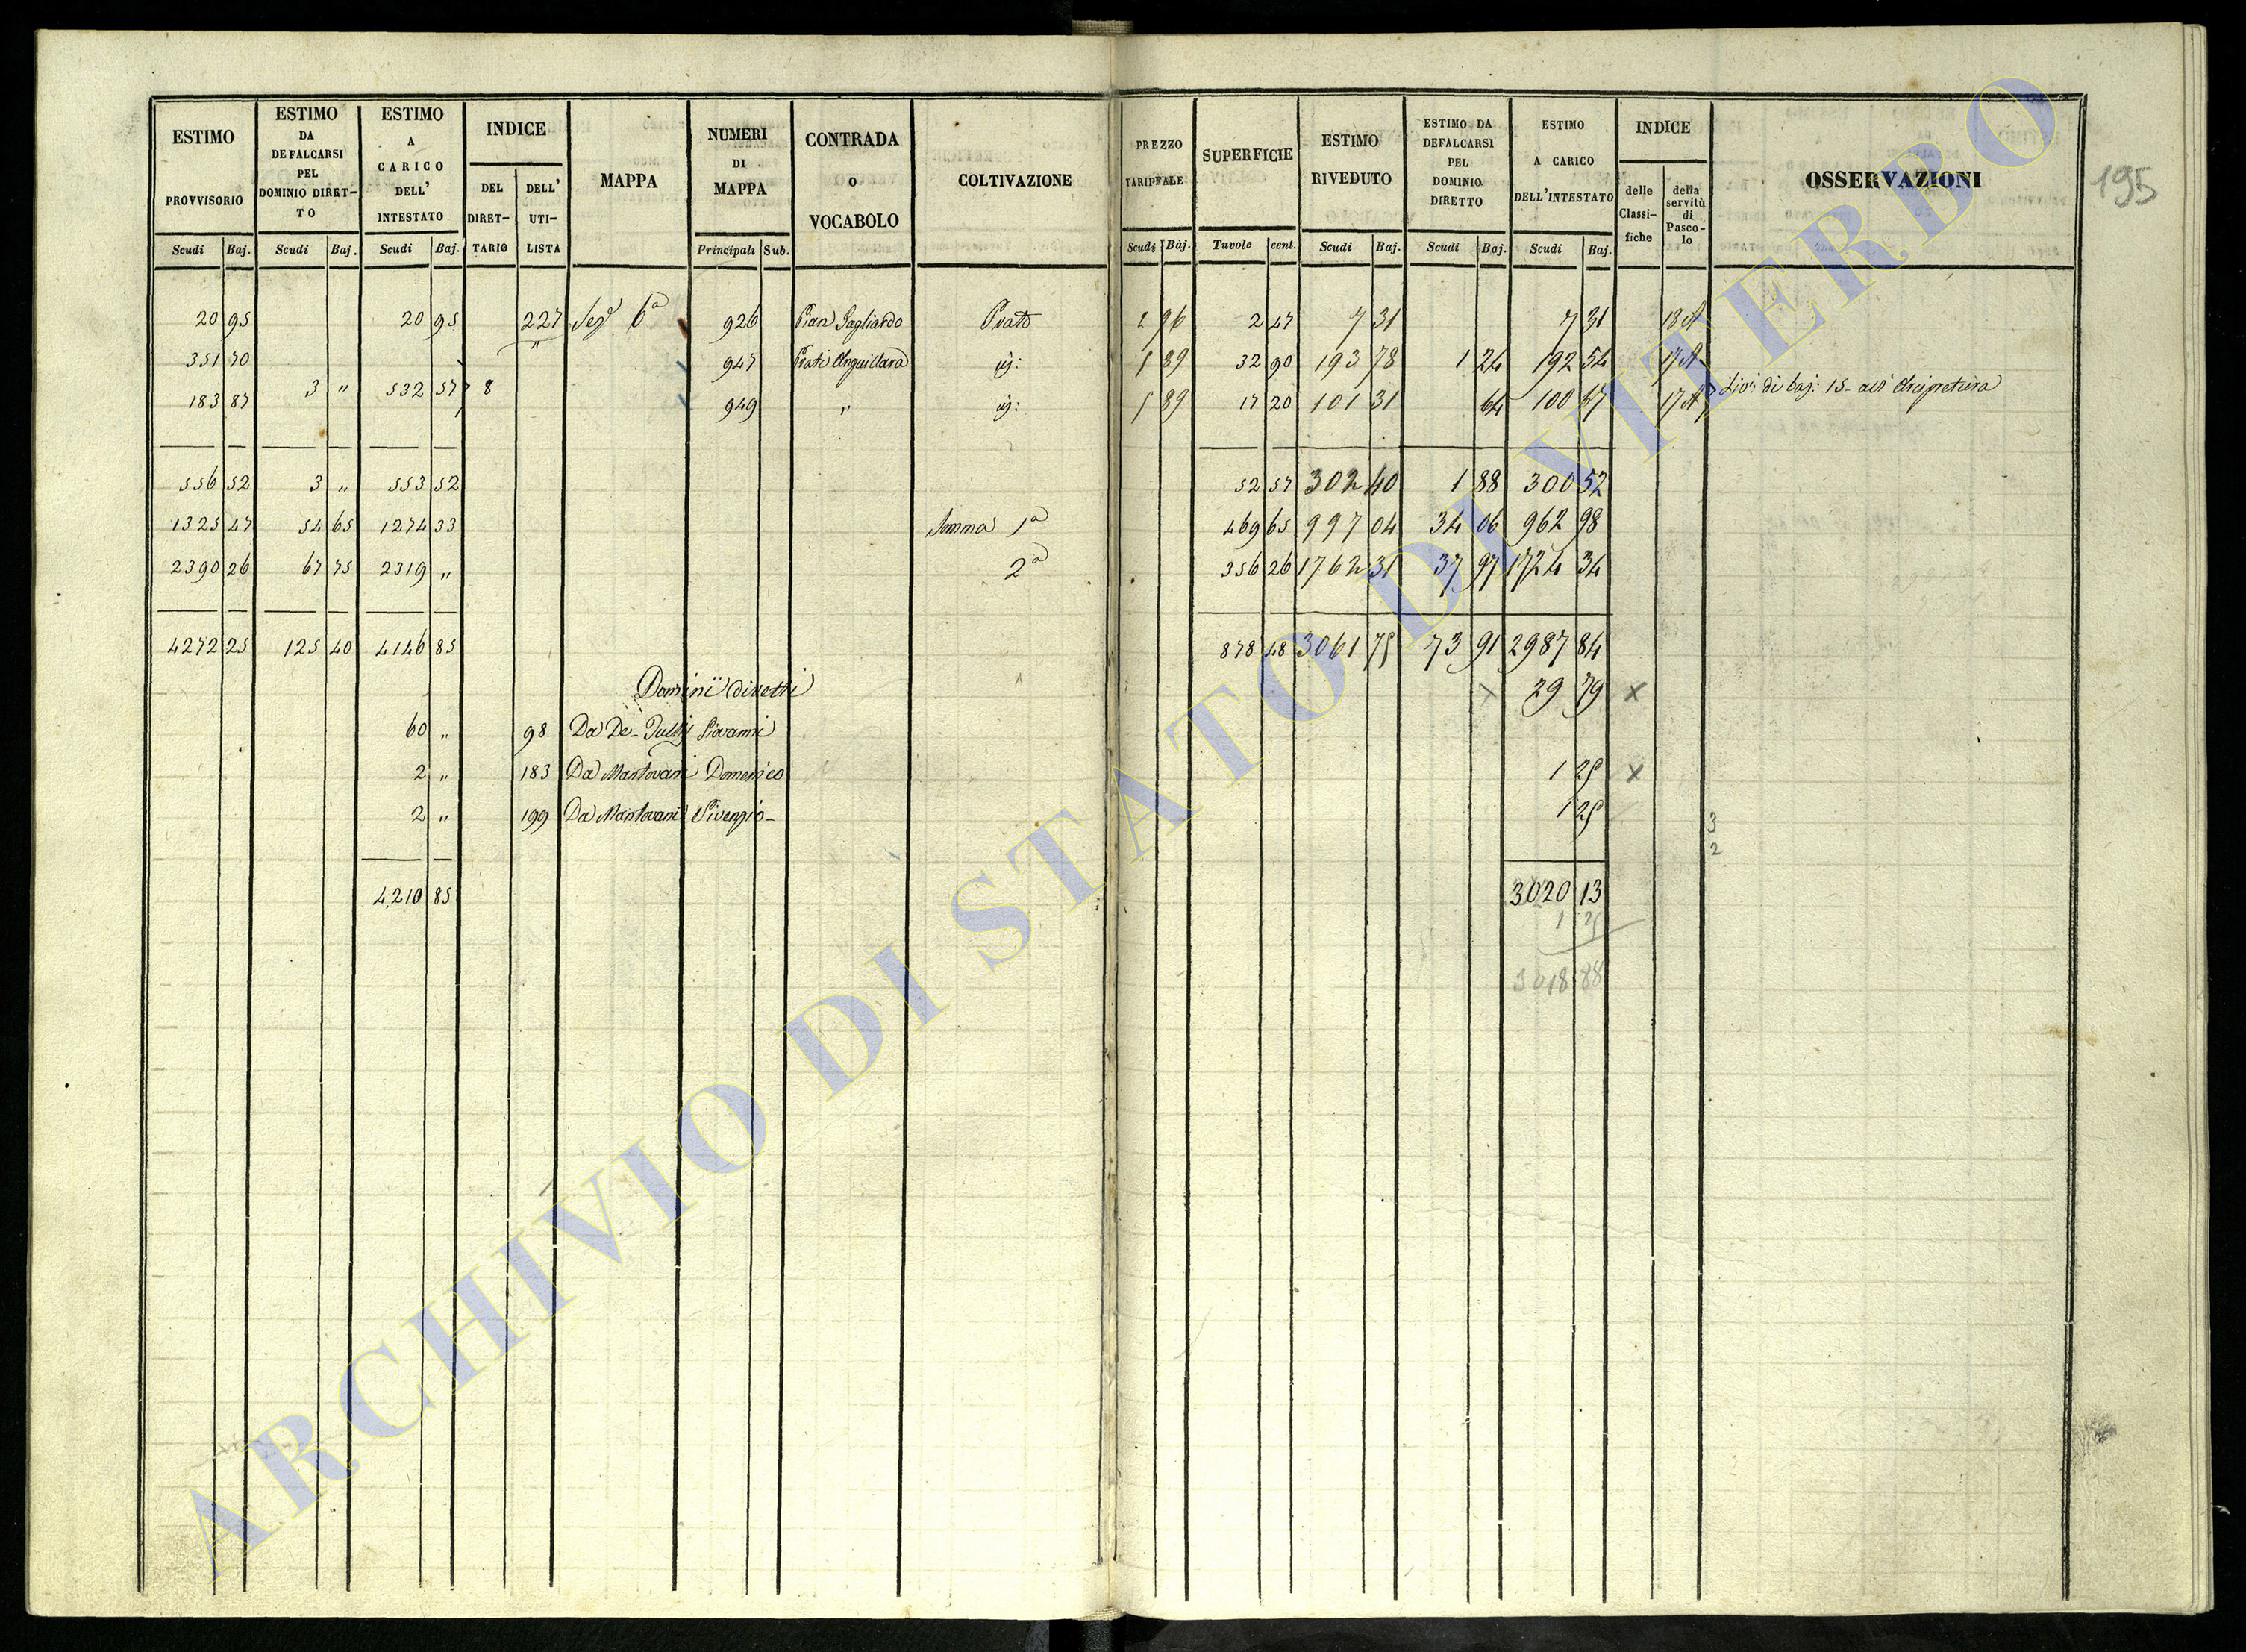 195
ESTIMO PROVVISORIO | ESTIMO DA DEFALCARSI PEL DOMINIO DIRET-TO | ESTIMO A CARICO DELL' INTESTATO | INDICE | MAPPA | NUMERI DI MAPPA | CONTRADA O VOCABOLO | COLTIVAZIONE | PREZZO | SUPERFICIE | ESTIMO RIVEDUTO | ESTIMO DA DEFALCARSI PEL DOMINIO DIRETTO | ESTIMO A CARICO DELL'INTESTATO | INDICE | OSSERVAZIONI
DEL DIRET-TARIO | DELL' UTI-LISTA | delle Classi-fiche | della servitù di Pasco-lo
Scudi Baj. | Scudi Baj. | Scudi Baj. | Principali Sub. | Scudi Baj. | Tavole cent. | Scudi Baj. | Scudi Baj. | Scudi Baj.
20 95 | 20 95 | 227 | Sez. 6a | 926 | Pian Gagliardo | Prato | 2 96 | 2 47 | 7 31 | 7 31 | 18 A
351 70 | " | 947 | Prati Anguillara | 5 89 | 32 90 | 193 78 | 1 24 | 192 54 | 17 A
3 " | 532 57 | 8 | Liv: di baj: 15 all' Arcipretura
183 87 | 949 | " | 5 89 | 17 20 | 101 31 | 64 | 100 67 | 17 A
556 52 | 3 " | 553 52 | 52 57 | 302 40 | 1 88 | 300 52
1325 47 | 54 65 | 1274 33 | Somma 1a | 469 65 | 997 04 | 34 06 | 962 98
2390 26 | 67 75 | 2319 " | 2a | 356 26 | 1762 31 | 37 97 | 1724 34
4272 25 | 125 40 | 4146 85 | 878 48 | 3061 75 | 73 91 | 2987 84
Dominii diretti | x | 29 79 | x
60 " | 98 | Da De Giovanni
2 " | 183 | Da Mantovani Domenico | 1 25 | x
2 " | 199 | Da Mantovani | 1 25
3
2
4210 85 | 3020 13
1 25
3018 88
ARCHIVIO DI STATO DI VITERBO